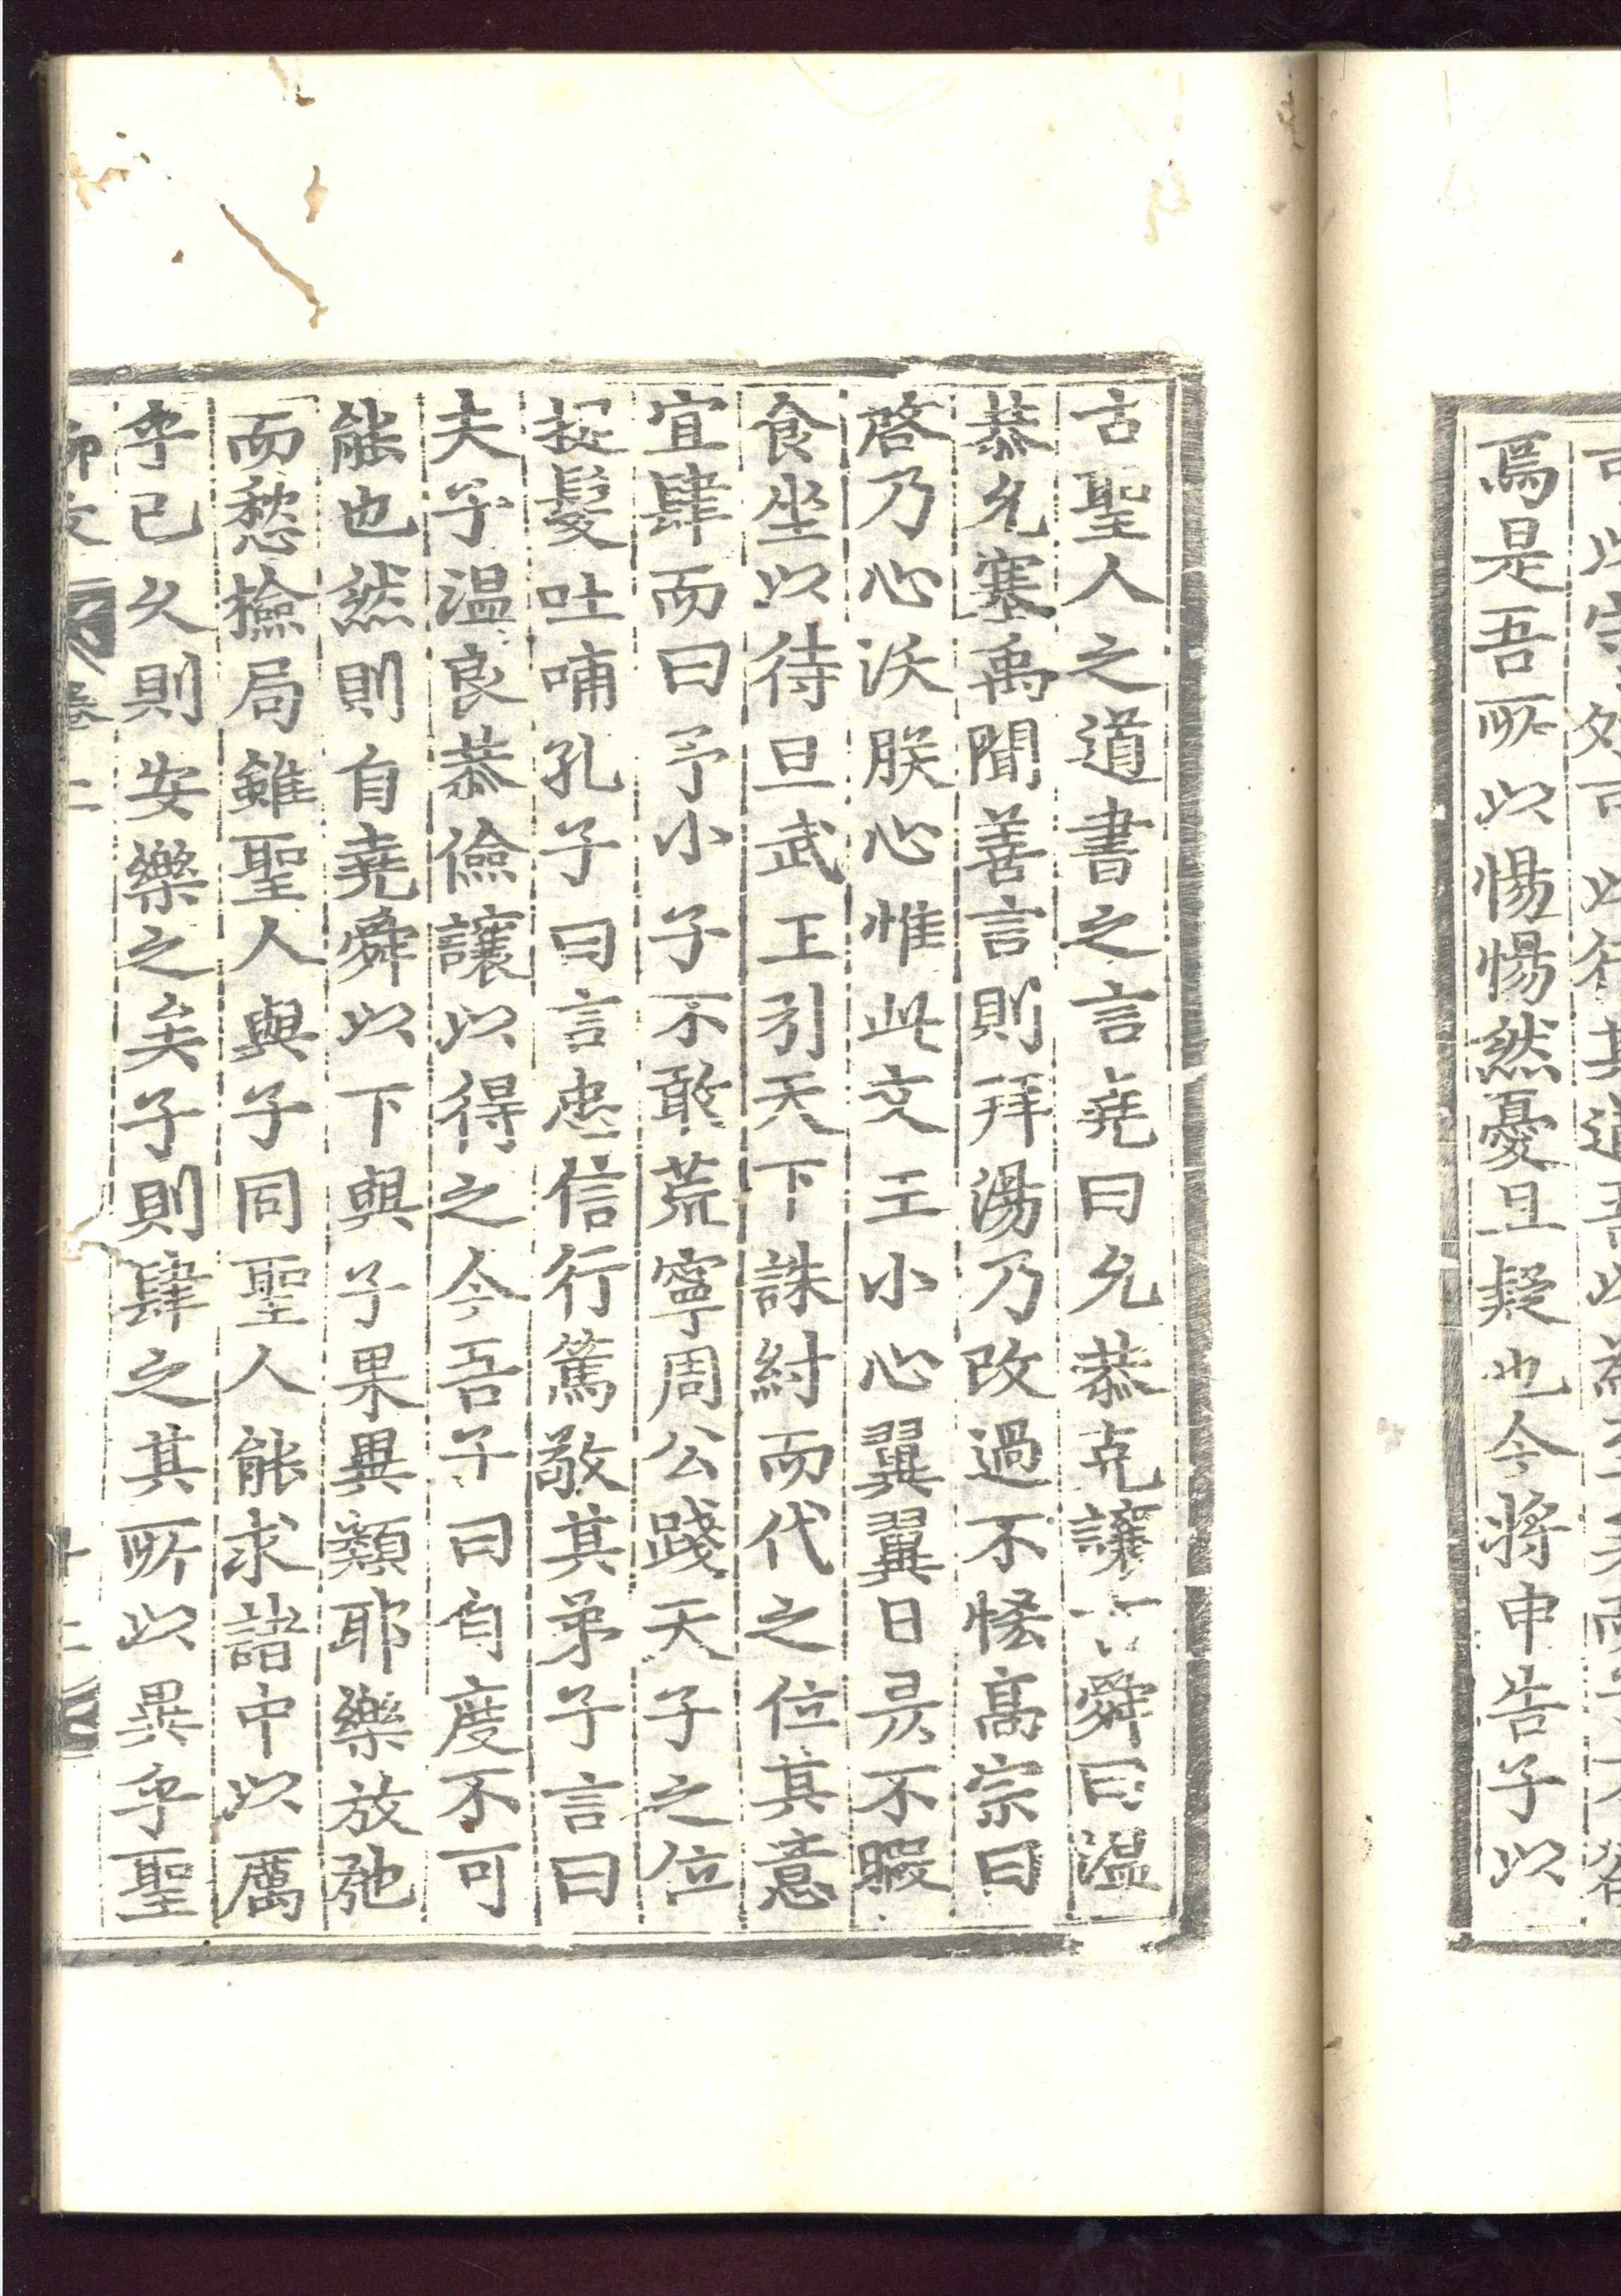 焉是吾所以惕惕然憂且疑也今將申告子以
古聖人之道書之言堯曰允恭克讓言舜曰溫
恭允塞禹聞善言則拜湯乃改過不恡高宗曰
啓乃心沃朕心惟此文王小心翼翼日昃不暇
食坐以待旦武王引天下誅紂而代之位其意
宜肆而曰予小子不敢荒寧周公踐天子之位
捉髮吐哺孔子曰言忠信行篤敬其弟子言曰
夫子溫良恭儉讓以得之今吾子曰自度不可
能也然則自堯舜以下與子果異類耶樂放弛
而愁撿局雖聖人與子同聖人能求諸中以厲
乎己久則安樂之矣子則肆之其所以異乎聖